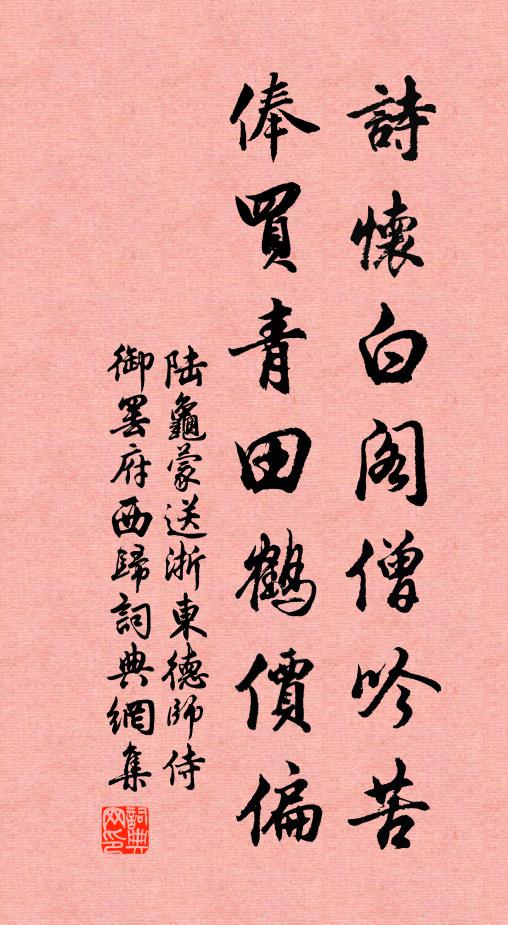 詩懷白阁僧吟苦
俸買青田鶴價偏
陆龜蒙送浙東德師侍
御罢府西歸詞典網集
詞典网印